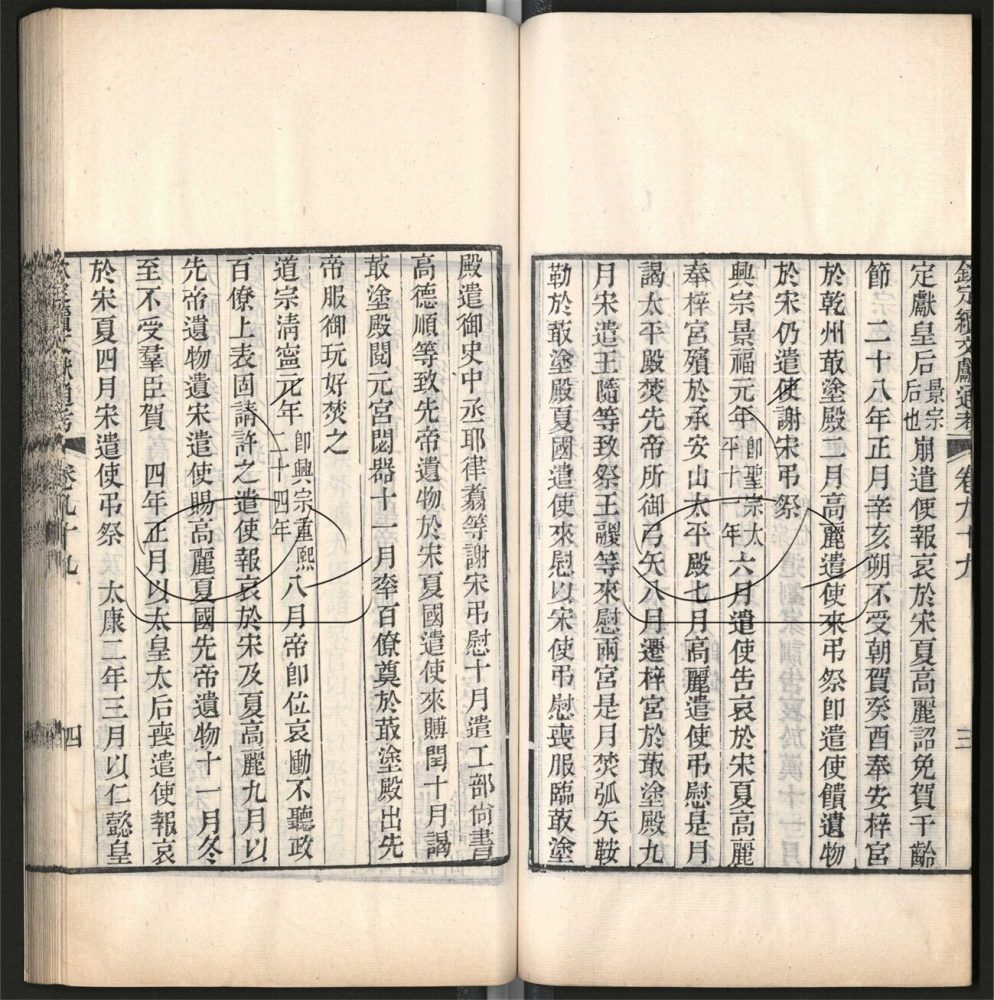 欽定續文獻通考 卷九十九 三
定獻皇后景宗后也崩遣使報哀於宋夏高麗詔免賀千齡
節 二十八年正月辛亥朔不受朝賀癸酉奉安梓宮
於乾州菆塗殿二月高麗遣使來弔祭卽遣使饋遺物
於宋仍遣使謝宋弔祭
興宗景福元年卽聖宗太平十一年六月遣使告哀於宋夏高麗
奉梓宮殯於承安山太平殿七月高麗遣使弔慰是月
謁太平殿焚先帝所御弓矢八月遷梓宮於菆塗殿九
月宋遣王隨等致祭王鬷等來慰兩宮是月焚弧矢鞍
勒於菆塗殿夏國遣使來慰以宋使弔慰喪服臨菆塗
殿遣御史中丞耶律翥等謝宋弔慰十月遣工部尚書
高德順等致先帝遺物於宋夏國遣使來賻閏十月謁
菆塗殿閱元宮閟器十一月率百僚奠於菆塗殿出先
帝服御玩好焚之
道宗淸寧元年卽興宗重熙二十四年八月帝卽位哀慟不聽政
百僚上表固請許之遣使報哀於宋及夏高麗九月以
先帝遺物遺宋遣使賜高麗夏國先帝遺物十一月冬
至不受羣臣賀 四年正月以太皇太后喪遣使報哀
於宋夏四月宋遣使弔祭 太康二年三月以仁懿皇
四